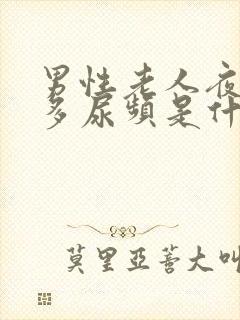 男性老人夜
多尿頻是什
莫里亞蒼大叫